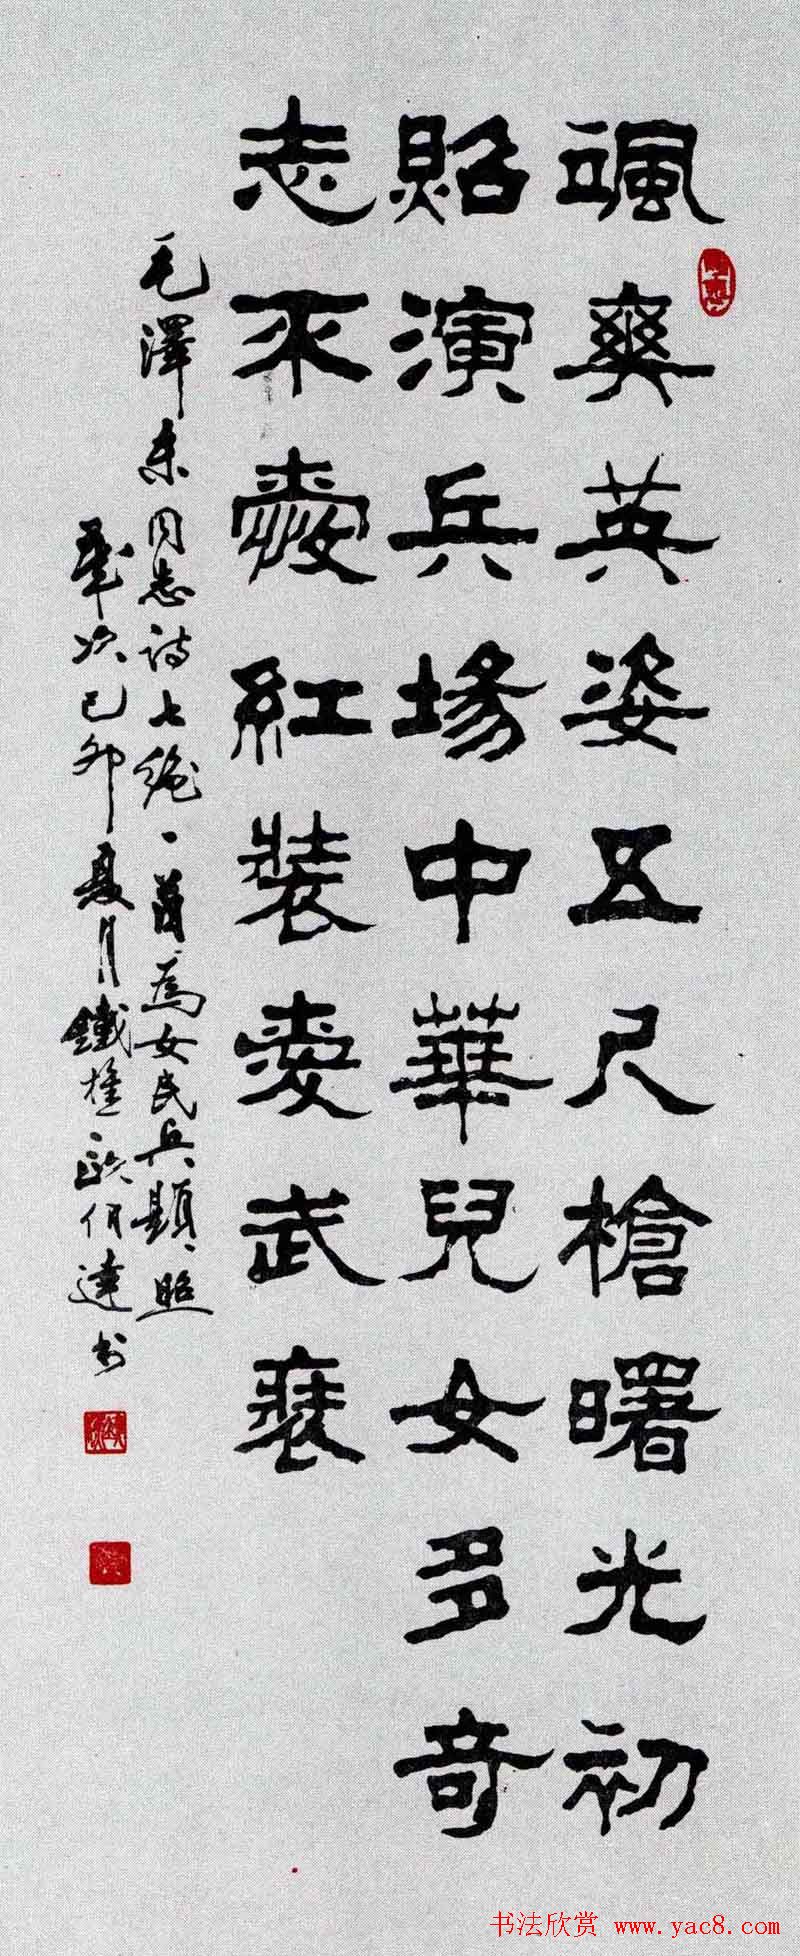 颯爽英姿五尺槍曙光初
照演兵場中華兒女多奇
志不愛紅裝愛武裝
毛澤东同志詩七絕一首為女民兵題照
歲次己卯夏月鐵 達书
书法欣赏 www.yac8.com